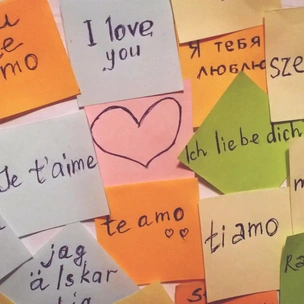 te
amo
I love
you
Я тебя
люблю
Ich liebe dich
Je t'aime
te amo
ti amo
jag
älskar